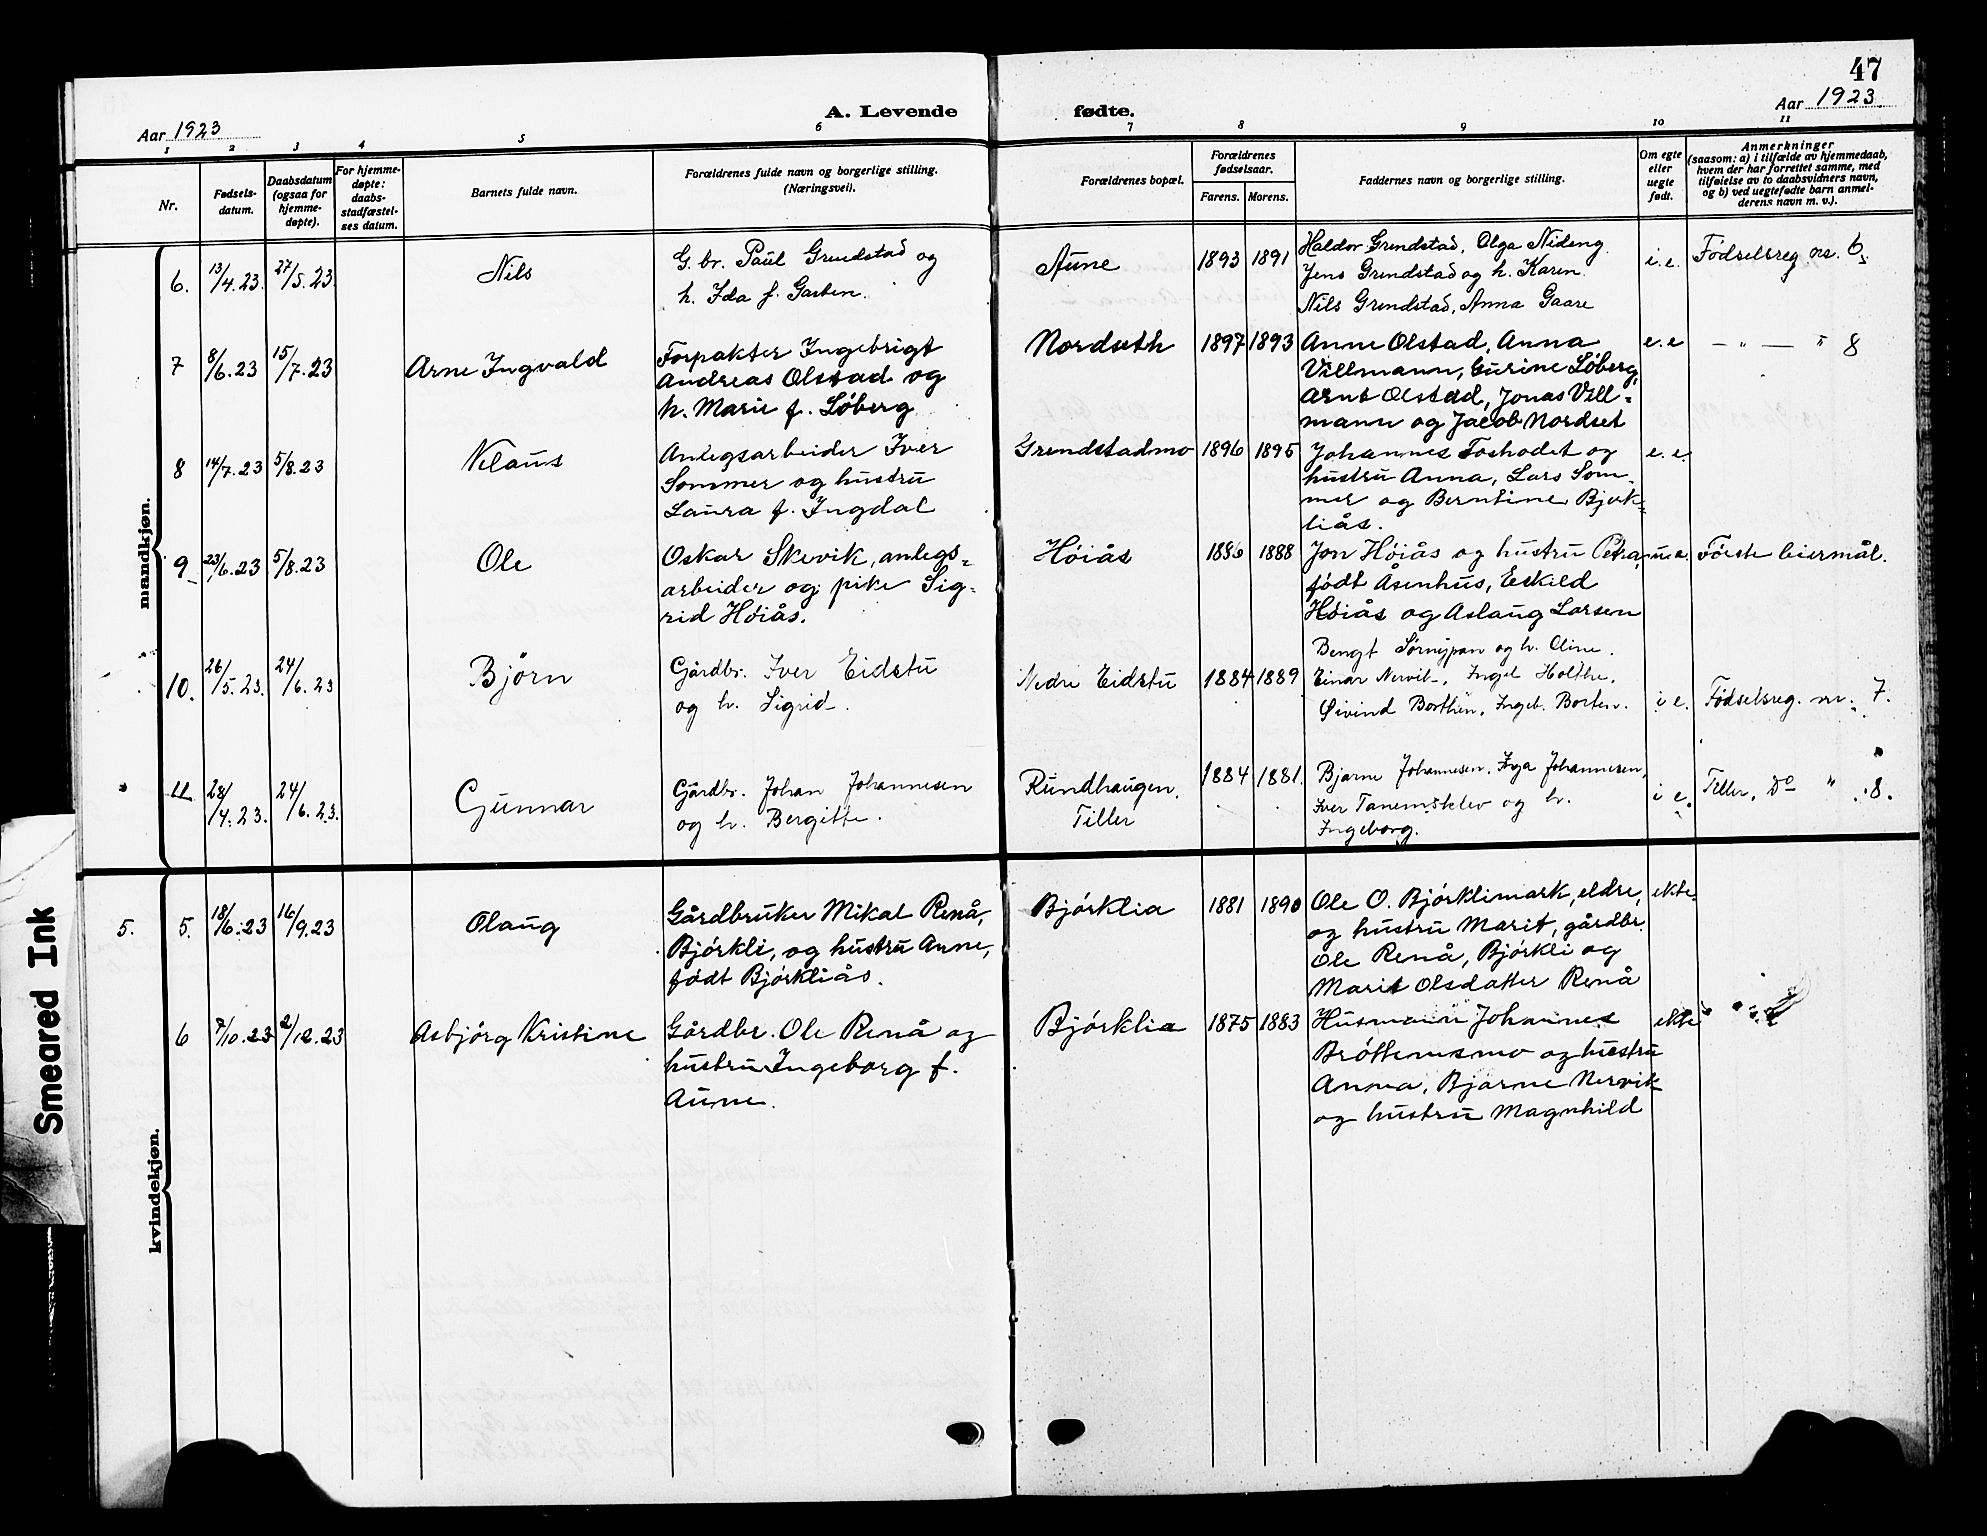 47
A. Levende fødte.
Aar 1923
Aar 1923
1 2 3 4 5 6 7 8 9 10 11
Nr.
Fødsels-
datum.
Daabsdatum
(ogsaa for
hjemme-
døpte).
For hjemme-
døpte:
daabs-
stadfæstel-
ses datum.
Barnets fulde navn.
Forældrenes fulde navn og borgerlige stilling.
(Næringsvei).
Forældrenes bopæl.
Forældrenes
fødselsaar.
Farens. Morens.
Faddernes navn og borgerlige stilling.
Om egte
eller
uegte
født.
Anmerkninger
(saasom: a) i tilfælde av hjemmedaab,
hvem der har forrettet samme, med
tilføielse av to daabsvidners navn,
og b) ved uegtefødte barn anmel-
derens navn m. v.).
mandkjøn.
6. 13/4.23. 27/5.23 Nils
G. br. Paul Grendstad og
h. Ida f. Garten.
Aune 1893 1891
Haldor Grendstad, Olga Nideng.
Jens Grendstad og h. Karen.
Nils Grendstad, Anna Gaare
i. e. Fødselsreg. nr. 6.
7 8/6.23 15/7.23 Arne Ingvald
Forpakter Ingebrigt
Andreas Olstad og
h. Marie f. Løberg
Nordseth 1897 1893
Anne Olstad, Anna
Villmann, Gurine Løberg,
Arnt Olstad, Jonas Vill-
mann og Jacob Nordset
e. e — " — " 8
8 14/7.23 5/8.23 Klaus
Anlegsarbeider Iver
Sommer og hustru
Laura f. Ingdal
Grendstadmo 1896 1895
Johannes Foshodet og
hustru Anna, Lars Som-
mer og Berntine Bjørk-
liås.
e. e.
9 23/6.23 5/8.23 Ole
Oskar Skevik, anlegs-
arbeider og pike Sig-
rid Høiås.
Høiås 1886 1888
Jon Høiås og hustru Petra,
født Åsenhus, Eskild
Høiås og Aslaug Larsen
u. e. Første leiermål.
10. 26/5.23. 24/6.23 Bjørn
Gårdbr. Iver Eidstu
og h. Sigrid.
Nedre Eidstu 1884 1889
Bengt Sørnypan og h. Oline.
Einar Nervik, Ingel Holthe,
Øivind Borthen, Ingeb. Borten.
i e. Fødselsreg. nr. 7.
11 28/4.23. 24/6.23. Gunnar
Gårdbr. Johan Johannesen
og h. Bergitte.
Rundhaugen,
Tiller
1884 1881.
Bjarne Johannesen, Inga Johannesen,
Iver Tanemsklev og h.
Ingeborg.
i e. Tiller, Do " 8.
kvindekjøn.
5. 5. 18/6.23 16/9.23 Olaug
Gårdbruker Mikal Renå,
Bjørkli, og hustru Anne,
født Bjørkliås.
Bjørklia 1881 1890
Ole O. Bjørklimark, eldre,
og hustru Marit, gårdbr.
Ole Renå, Bjørkli og
Marit Olsdatter Renå
ekte
6 7/10.23 2/12.23 Asbjørg Kristine
Gårdbr. Ole Renå og
hustru Ingeborg f.
Aune.
Bjørklia 1875 1883
Husmann Johannes
Brøttemsmo og hustru
Anna, Bjarne Nervik
og hustru Magnhild
ekte
Smeared Ink